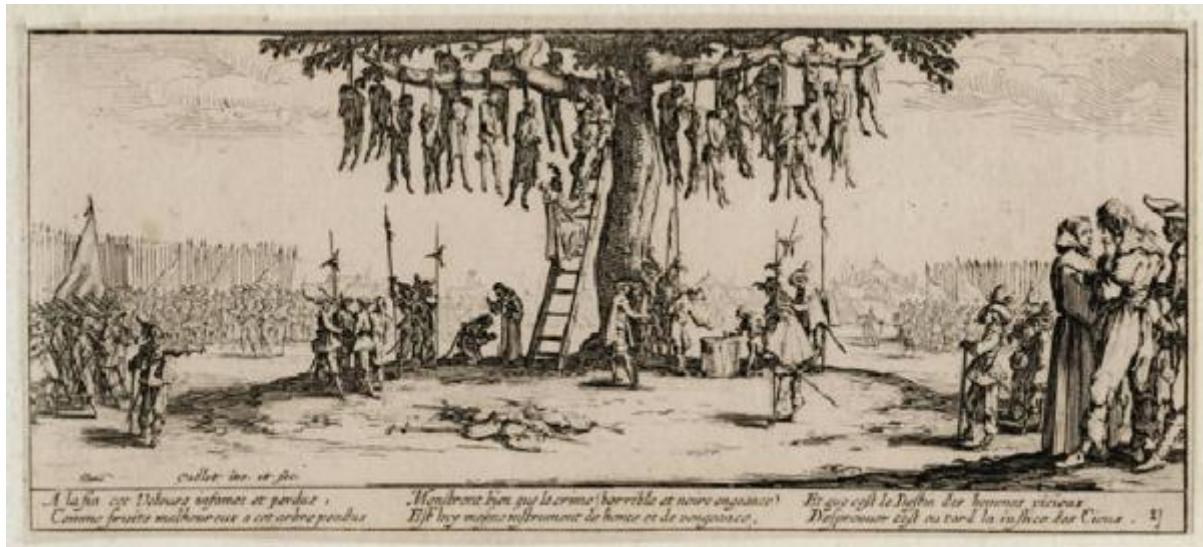 Callot inv. et fec.
A la fin ces Voleurs infames et perdus,
Comme fruits malheureux a cet arbre pendus
Monstrent bien que le crime (horrible et noire engeance)
Est luy mesme instrument de honte et de vengeance,
Et que cest le Destin des hommes vicieux
Desprouver tost ou tard la iustice des Cieux.